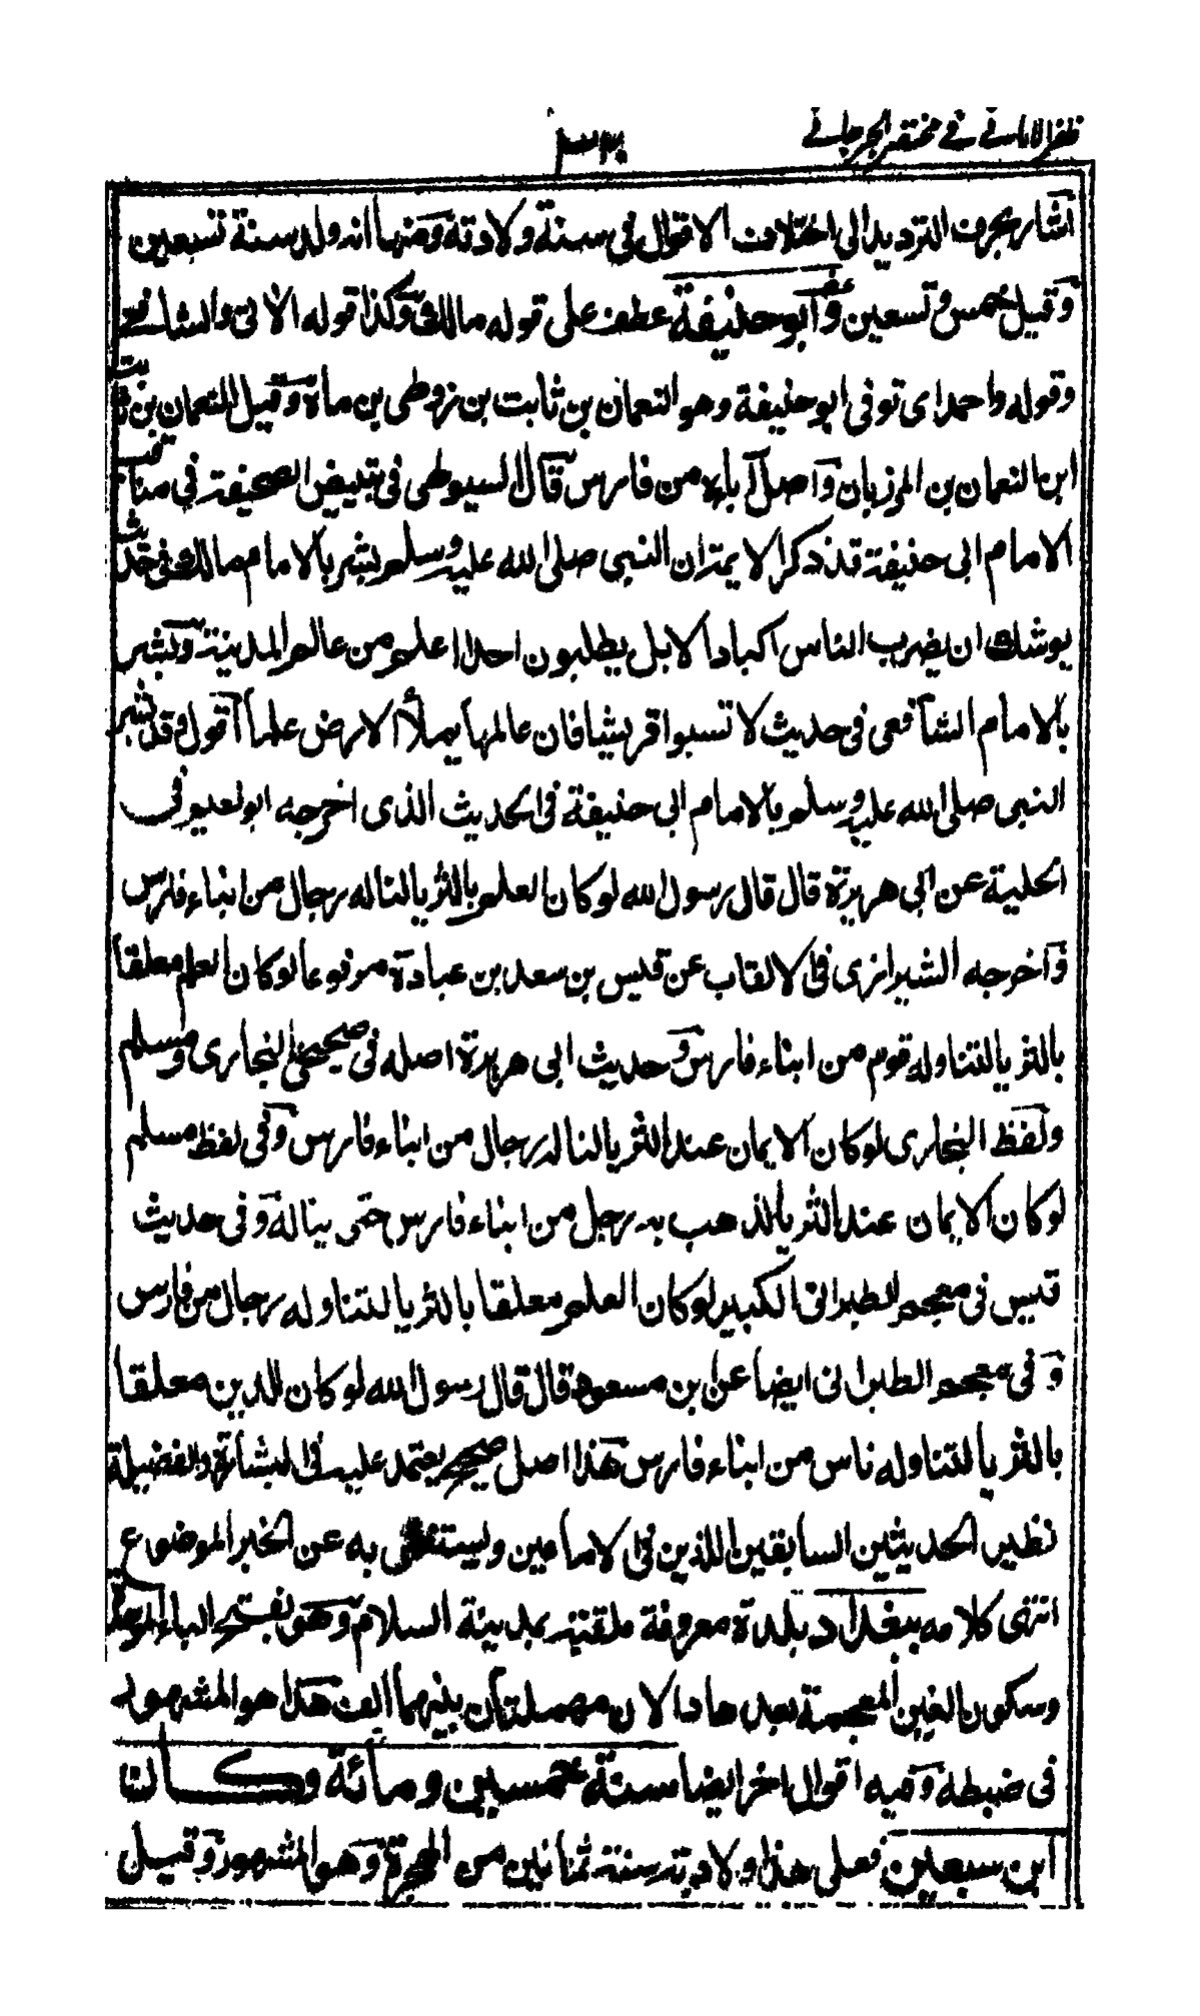 ظفر الاماني في مختصر الجرجاني
اشار بحرف الترديد الى اختلاف الاقوال في سنة ولادته ومنها انه ولد سنة تسعين
وقيل خمس وتسعين وابو حنيفة عطف على قوله مالك وكذا قوله الاتي والشافعي
وقوله واحمد اى توفى ابو حنيفة وهو النعمان بن ثابت بن زوطى بن ماة وقيل النعمان بن ثابت
ابن النعمان بن المرزبان واصل آبائه من فارس قال السيوطى فى تبييض الصحيفة في مناقب
الامام ابى حنيفة قد ذكر الايمة ان النبى صلى الله عليه وسلم بشر بالامام مالك في حديث
يوشك ان يضرب الناس اكباد الابل يطلبون احدا اعلم من عالم المدينة وبشر
بالامام الشافعى فى حديث لا تسبوا قريشا فان عالمها يملأ الارض علما اقول وقد بشر
النبى صلى الله عليه وسلم بالامام ابى حنيفة فى الحديث الذى اخرجه ابو نعيم في
الحلية عن ابى هريرة قال قال رسول الله لو كان العلم بالثريا لناله رجال من ابناء فارس
واخرجه الشيرازى فى الالقاب عن قيس بن سعد بن عبادة مرفوعا لو كان العلم معلقا
بالثريا لتناوله قوم من ابناء فارس وحديث ابى هريرة اصله فى صحيحى البخارى ومسلم
ولفظ البخارى لو كان الايمان عند الثريا لناله رجال من ابناء فارس وفى لفظ مسلم
لو كان الايمان عند الثريا لذهب به رجل من ابناء فارس حتى يناله وفى حديث
قيس فى معجم الطبرانى الكبير لو كان العلم معلقا بالثريا لتناوله رجال من فارس
وفى معجم الطبرانى ايضا عن ابن مسعود قال قال رسول الله لو كان الدين معلقا
بالثريا لتناوله ناس من ابناء فارس فهذا اصل صحيح يعتمد عليه فى البشارة والفضيلة
نظير الحديثين السابقين اللذين فى الامامين ويستغنى به عن الخبر الموضوع
انتهى كلامه ببغداد بلدة معروفة ملقبة بمدينة السلام وهو بفتح الباء الموحدة
وسكون الغين المعجمة بعدها دالان مهملتان بينهما الف هذا هو المشهور
فى ضبطه وفيه اقوال اخر ايضا سنة خمسين ومائة وكان
ابن سبعين فعلى هذا ولادته سنة ثمانين من الهجرة وهو المشهور وقيل